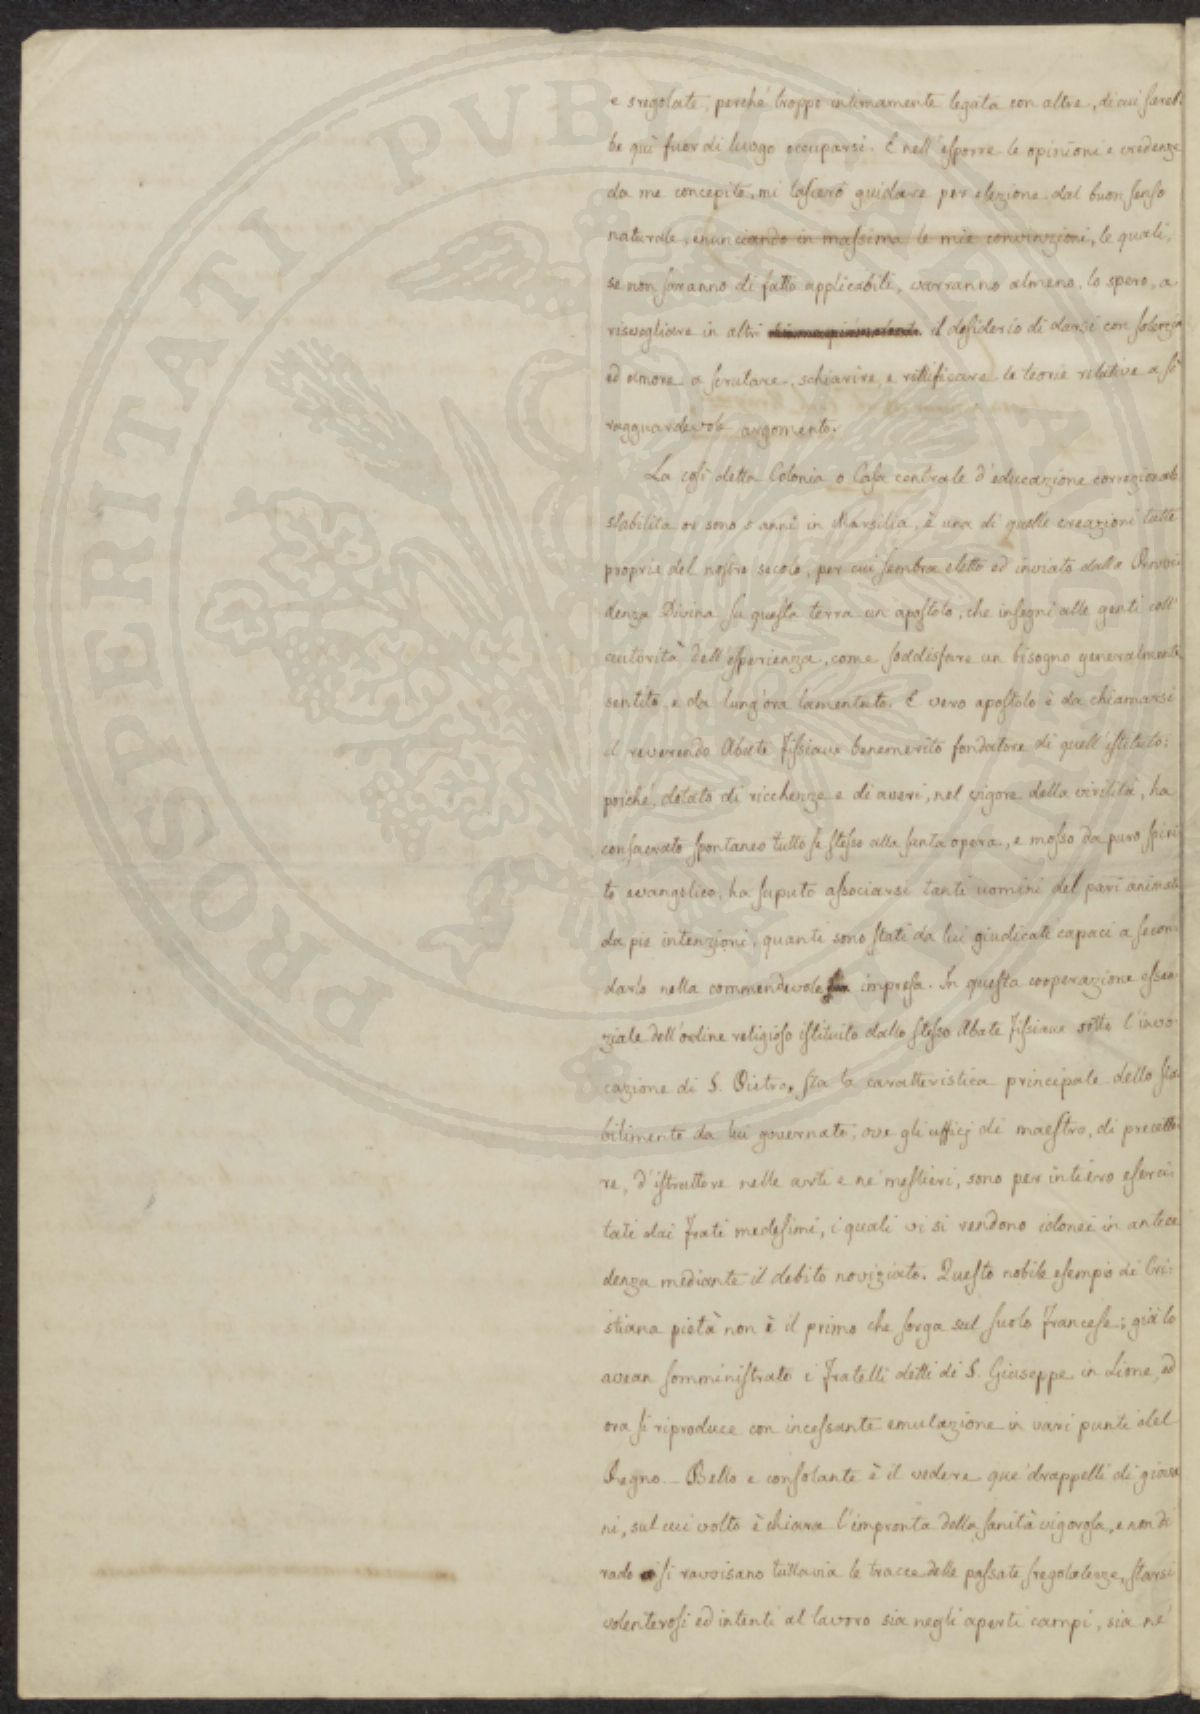 e sregolate, perché troppo intimamente legata con altre, di cui sareb:
be quì fuor di luogo occuparsi. E nell'esporre le opinioni e credenze
da me concepite, mi lascerò guidare per elezione dal buon senso
naturale, enunciando in massima le mie convinzioni, le quali,
se non saranno di fatto applicabili, varranno almeno, lo spero, a
risvegliare in altri il desiderio di darsi con solerzia
ed amore a scrutare, schiarire, e rettificare le teorie relative a sì
ragguardevole argomento.
La così detta Colonia o Casa centrale d'educazione correzionale
stabilita or sono 5 anni in Marsilia, è una di quelle creazioni tutte
proprie del nostro secolo, per cui sembra eletto ed inviato dalla Provvi:
denza Divina su questa terra un apostolo, che insegni alle genti coll'
autorità dell'esperienza, come soddisfare un bisogno generalmente
sentito, e da lung'ora lamentato. E vero apostolo è da chiamarsi
il reverendo Abate Fissiaux benemerito fondatore di quell'istituto;
poiché, dotato di ricchezze e di averi, nel vigore della virilità, ha
consacrato spontaneo tutto se stesso alla santa opera, e mosso da puro spiri:
to evangelico, ha saputo associarsi tanti uomini del pari animati
da pie intenzioni, quanti sono stati da lui giudicati capaci a secon:
darlo nella commendevole impresa. In questa cooperazione essen:
ziale dell'ordine religioso istituito dallo stesso Abate Fissiaux sotto l'invo:
cazione di S. Pietro, sta la caratteristica principale dello sta:
bilimento da lui governato; ove gli ufficj di maestro, di precetto:
re, d'istruttore nelle arti e ne' mestieri, sono per intiero eserci:
tati dai Frati medesimi, i quali vi si rendono idonei in antece:
denza mediante il debito noviziato. Questo nobile esempio di Cri:
stiana pietà non è il primo che sorga sul suolo Francese; già lo
avean somministrato i Fratelli detti di S. Giuseppe in Lione, ed
ora si riproduce con incessante emulazione in vari punti del
Regno. _ Bello e consolante è il vedere que' drappelli di giova
ni, sul cui volto è chiara l'impronta della sanità vigorosa, e non di
rado si ravvisano tuttavia le tracce delle passate sregolatezze, starsi
volenterosi ed intenti al lavoro sia negli aperti campi, sia ne'
PROSPERITATI PUBLICAE